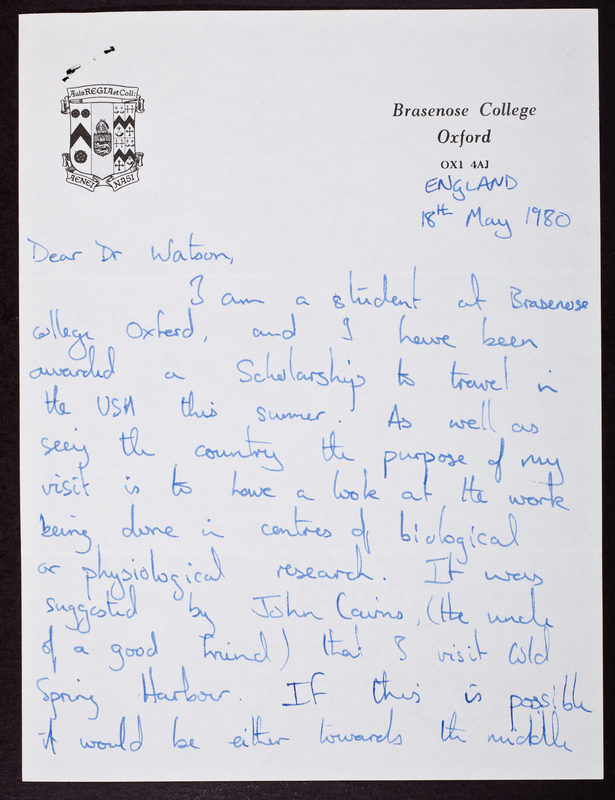 Aula REGIA et Coll:
AENEI NASI
Brasenose College
Oxford
OX1 4AJ
ENGLAND
18th May 1980
Dear Dr Watson,
I am a student at Brasenose
college Oxford, and I have been
awarded a Scholarship to travel in
the USA this summer. As well as
seeing the country the purpose of my
visit is to have a look at the work
being done in centres of biological
or physiological research. It was
suggested by John Cairns, (the uncle
of a good friend) that I visit Cold
Spring Harbour. If this is possible
it would be either towards the middle